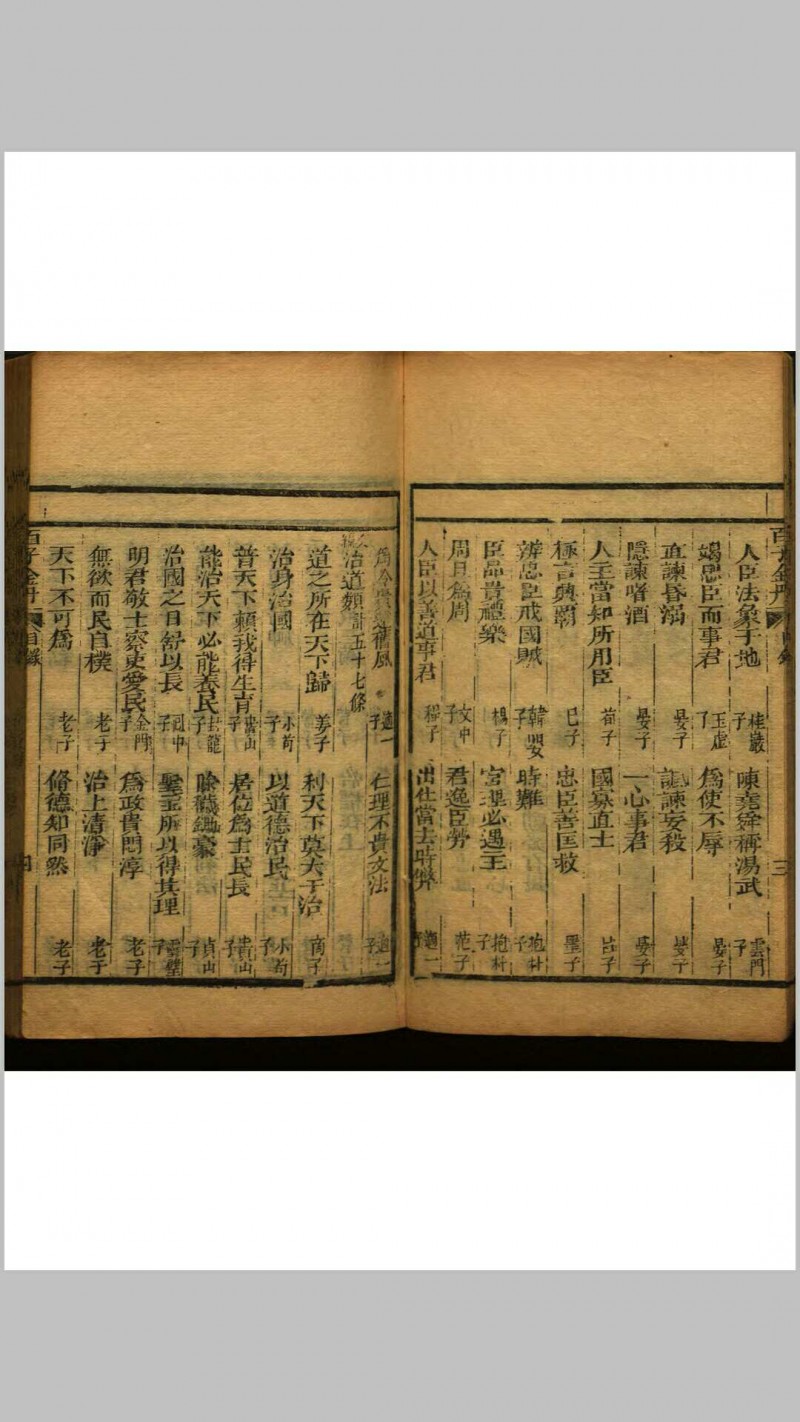 百子金丹 目錄 三
人臣法象于地 桂巖子 陳堯舜稱湯武 雲門子
竭忠臣而事君 玉虛子 為使不辱 晏子
直諫昏溺 晏子 諷諫妄殺 晏子
隱諫嗜酒 晏子 一心事君 晏子
人主當知所用臣 荀子 國寡直士
極言興霸 忠臣善匡救 墨子
辨忠臣戒國賊 韓嬰子 時難 抱朴子
臣品貴禮樂 楊子 官理必遇王 抱朴子
周旦為周 文中子 君逸臣勞 范子
人臣以善道事君 程子 出仕當去時弊
仁理不貴文法
治道類 計五十七條
道之所在天下歸 姜子 利天下莫大于治 商子
治身治國 小荀子 以道德治民 小荀子
普天下賴我得生育 居位為士民長
能治天下必能養民 封龍子 除穢鋤豪 貞山子
治國之日舒以長 回中子 聖王所以得其理 雲璧子
明君敬士察吏愛民 金門子 為政貴悶淳 老子
無欲而民自樸 老子 治上清淨 老子
天下不可為 老子 脩德知同然 老子
百子金丹 目錄 四